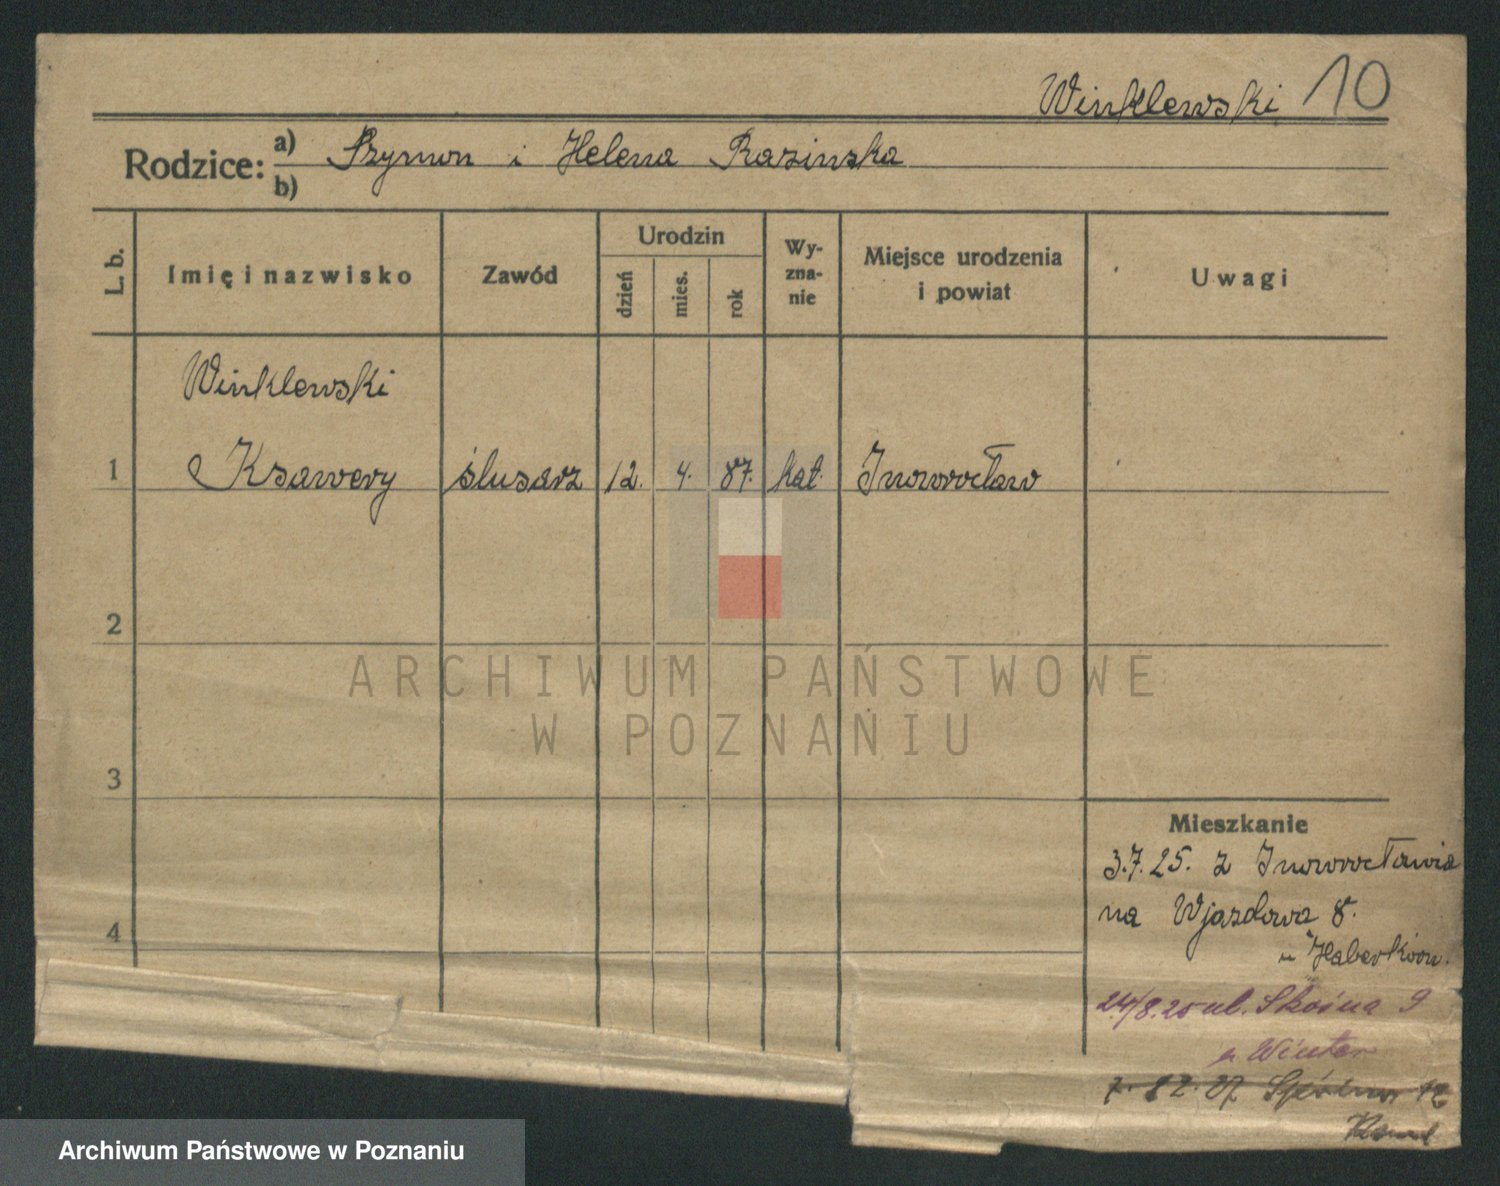 Winklewski 10
Rodzice: a) Szymon i Helena Rasinska
b)
L. b. Imię i nazwisko Zawód Urodzin dzień mies. rok Wy-zna-nie Miejsce urodzenia i powiat Uwagi
Winklewski
1 Ksawery ślusarz 12. 4. 87. kat. Inowrocław
2
3
4
Mieszkanie
3.7.25. z Inowrocławia
na Wjazdowa 8.
u Haberkorn.
24/8.25 ul. Skośna 9
u Winter
ARCHIWUM PAŃSTWOWE
W POZNANIU
Archiwum Państwowe w Poznaniu